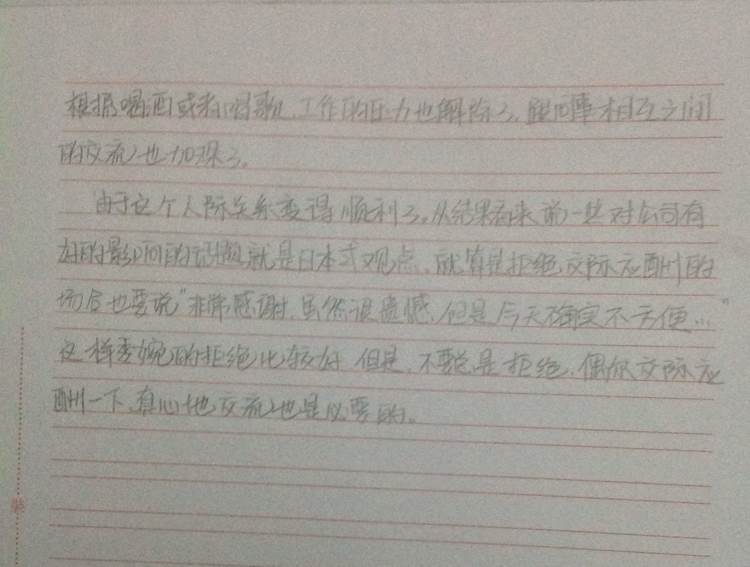 根据喝酒或者唱歌,工作的压力也解除了,跟同事相互之间
的交流也加深了。
由于这个人际关系变得顺利了。从结果看来前一些对公司有
好的影响的说法就是日本式观点、就算是拒绝交际应酬的
场合也要说"非常感谢,虽然很遗憾,但是今天确实不方便…"
这样委婉的拒绝比较好 但是,不要总是拒绝,偶尔交际应
酬一下,有心地交流也是必要的。
装